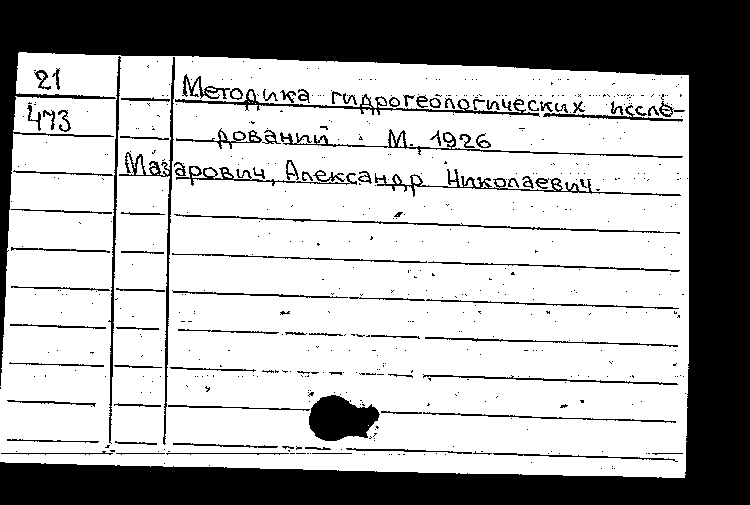 21
473
Методика гидрогеологических иссле-
дований. М., 1926
Мазарович, Александр Николаевич.